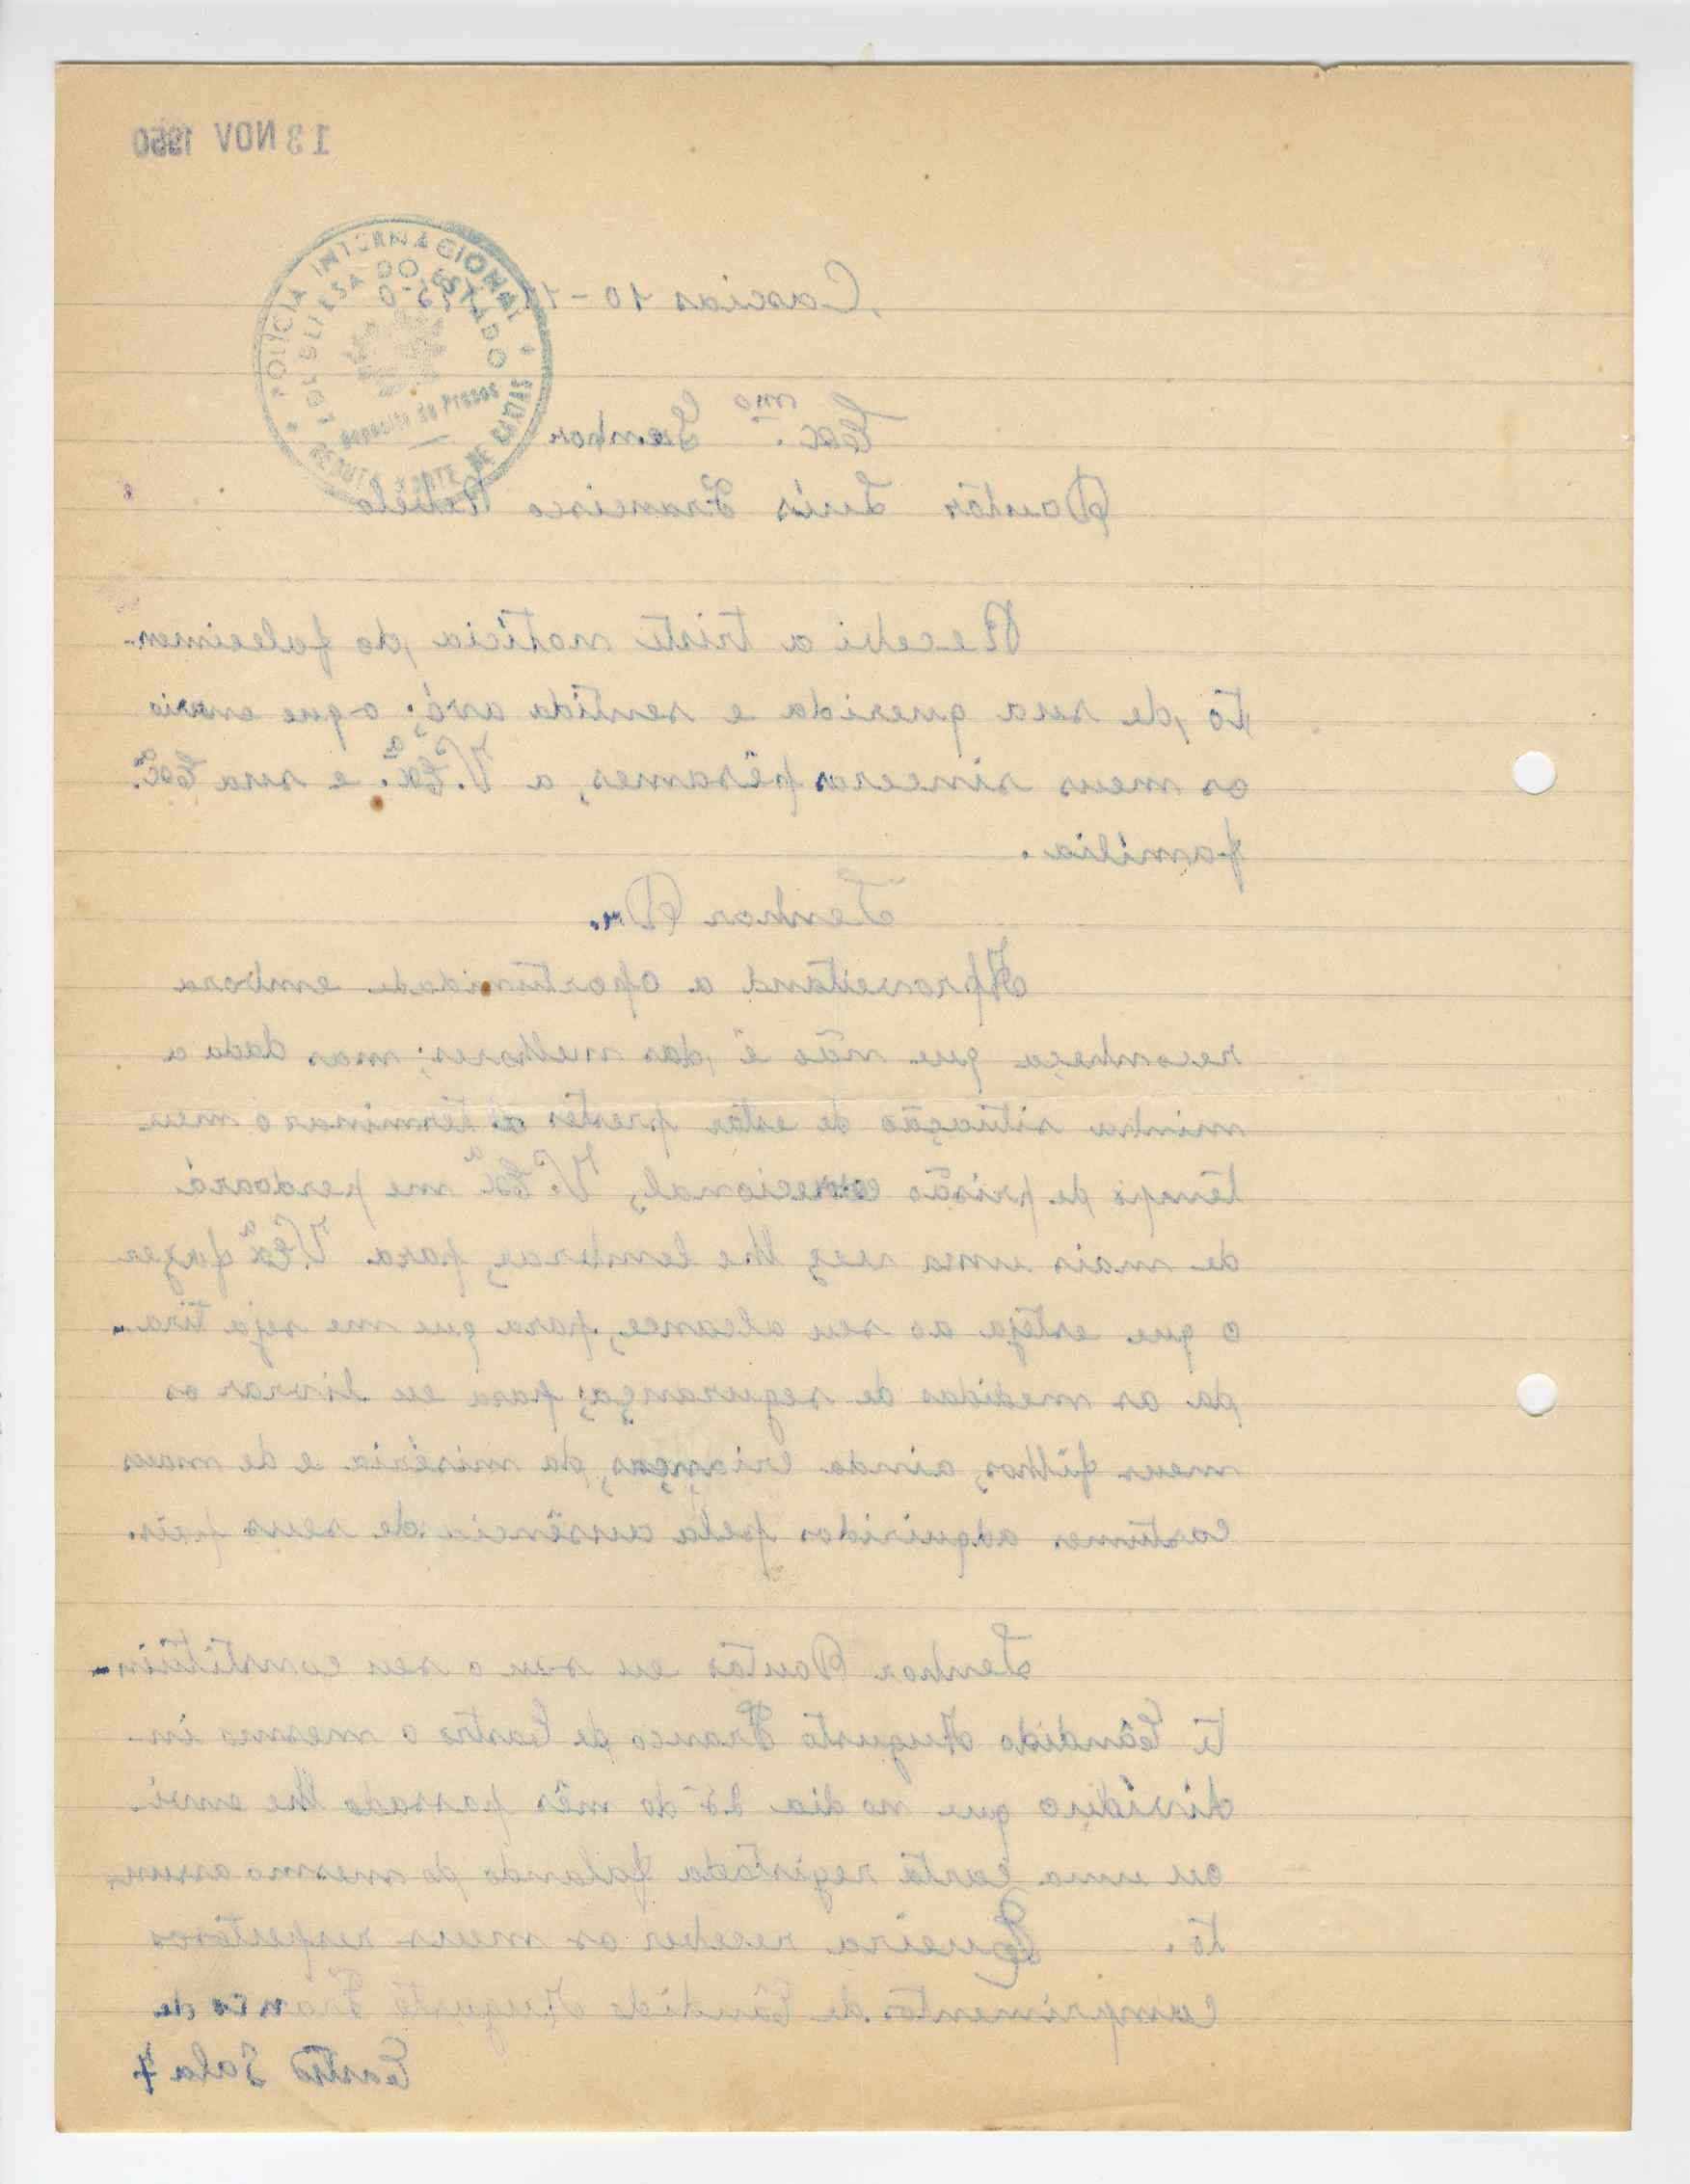 13 NOV 1950
POLÍCIA INTERNACIONAL
PORTUGUESA DO ESTADO
Depósito de Presos
REDUTO NORTE DE CAXIAS
Caxias 10-11-950
Exc.mo Senhor
Doutôr Luís Francisco Rebêlo
Recebi a triste notícia, do falecimen-
to, de sua querida e sentida avó; o que envio
os meus sinceros pêsames, a V. Exc.ª e sua Exc.ª
família.
Senhor Dr.
Aproveitand a oportunidade embora
reconheça que não é das melhores; mas dada a
minha situação de estar prestes a terminar o meu
tempo de prisão correcional, V. Exª me perdoará
de mais uma vez lhe lembrar, para V. Exª fazer
o que esteja ao seu alcance, para que me seja tira-
da as medidas de segurança; para eu livrar os
meus filhos, ainda crianças, da miséria e de maus
costumes adquiridos pela ausência de seus pais.
Senhor Doutor eu sou o seu constituin-
te Cândido Augusto Franco de Castro o mesmo in-
divíduo que no dia 25 do mês passado lhe envi-
ou uma carta registada falando do mesmo assun-
to. Queira receber os meus respeitosos
comprimentos de Cândido Augusto Franco de
Castro Sala 4